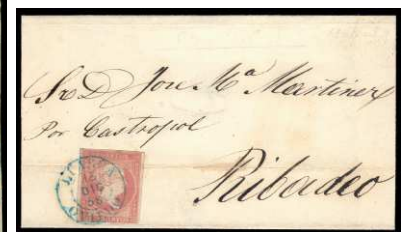 Sr D Jose Mª Martinez
Por Castropol
Ribadeo